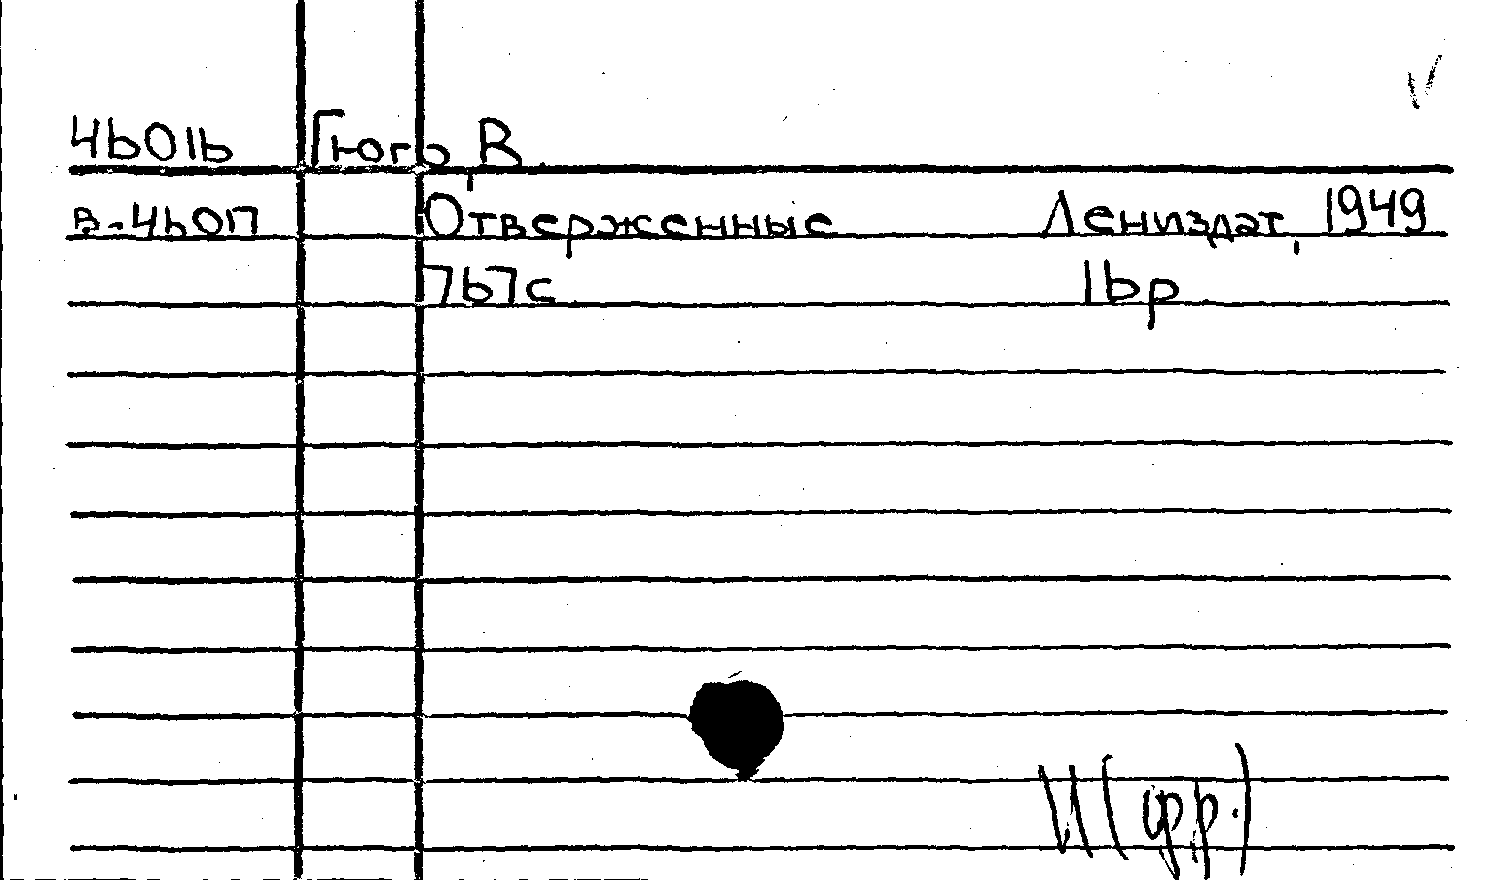 46016 Гюго, В.
В-46017 Отверженные Лениздат, 1949
767с. 16р
И(фр.)